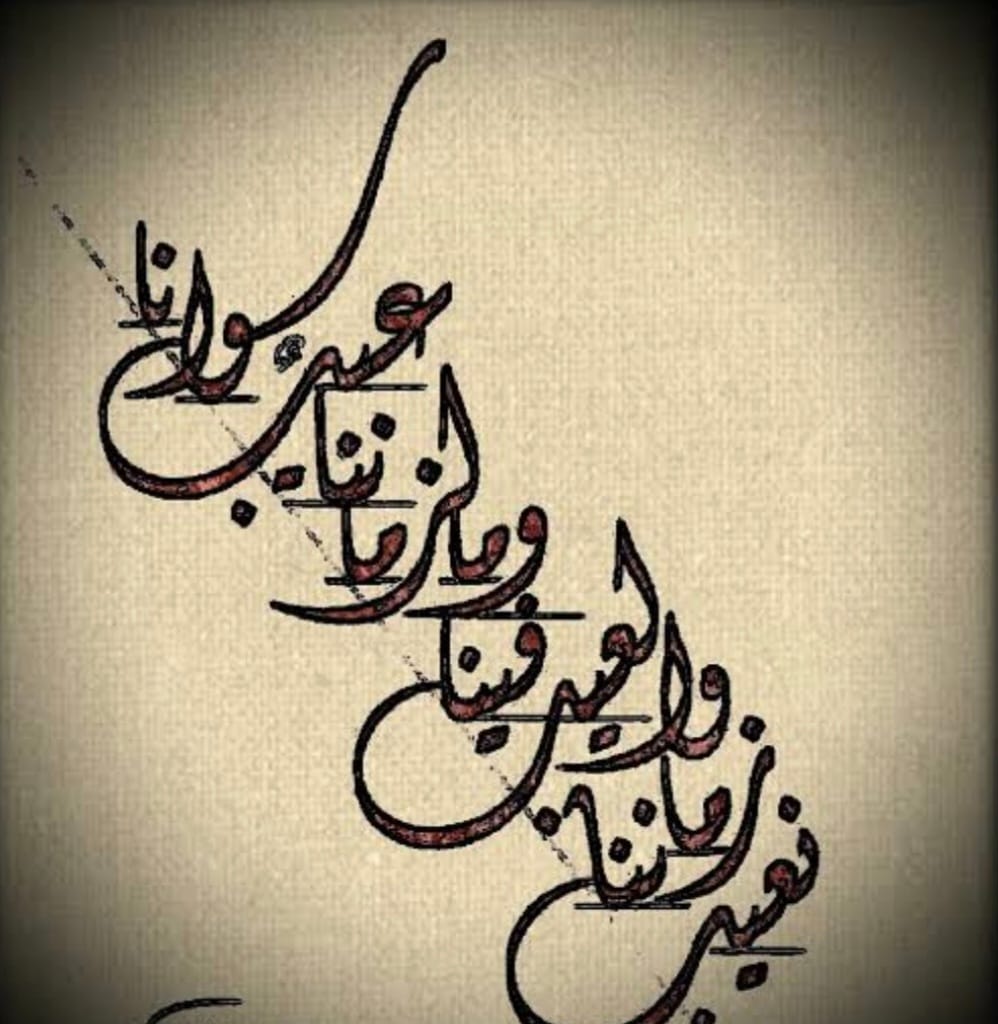 نعيب زماننا
والعيب فينا
وما لزماننا
عيب سوانا